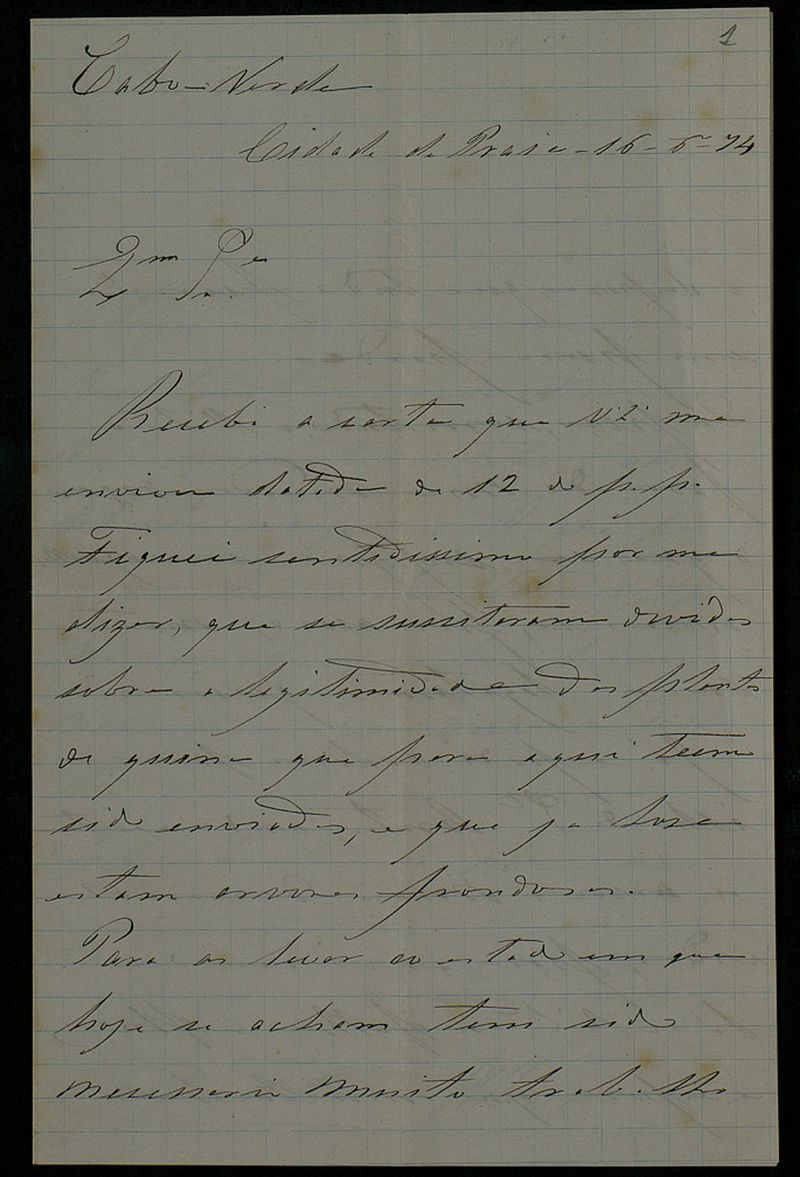 1
Cabo-Verde
Cidade da Praia - 16 - 6 - 74
Recebi a carta que V. me
enviou datada de 12 do p. p.
Fiquei sentidissimo por me
dizer, que se suscitaram duvidas
sobre a legitimidade das plantas
de quina que para aqui teem
sido enviadas, e que ja hoje
estam arvores frondosas.
Para as levar ao estado em que
hoje se acham tem sido
necessario muito trabalho